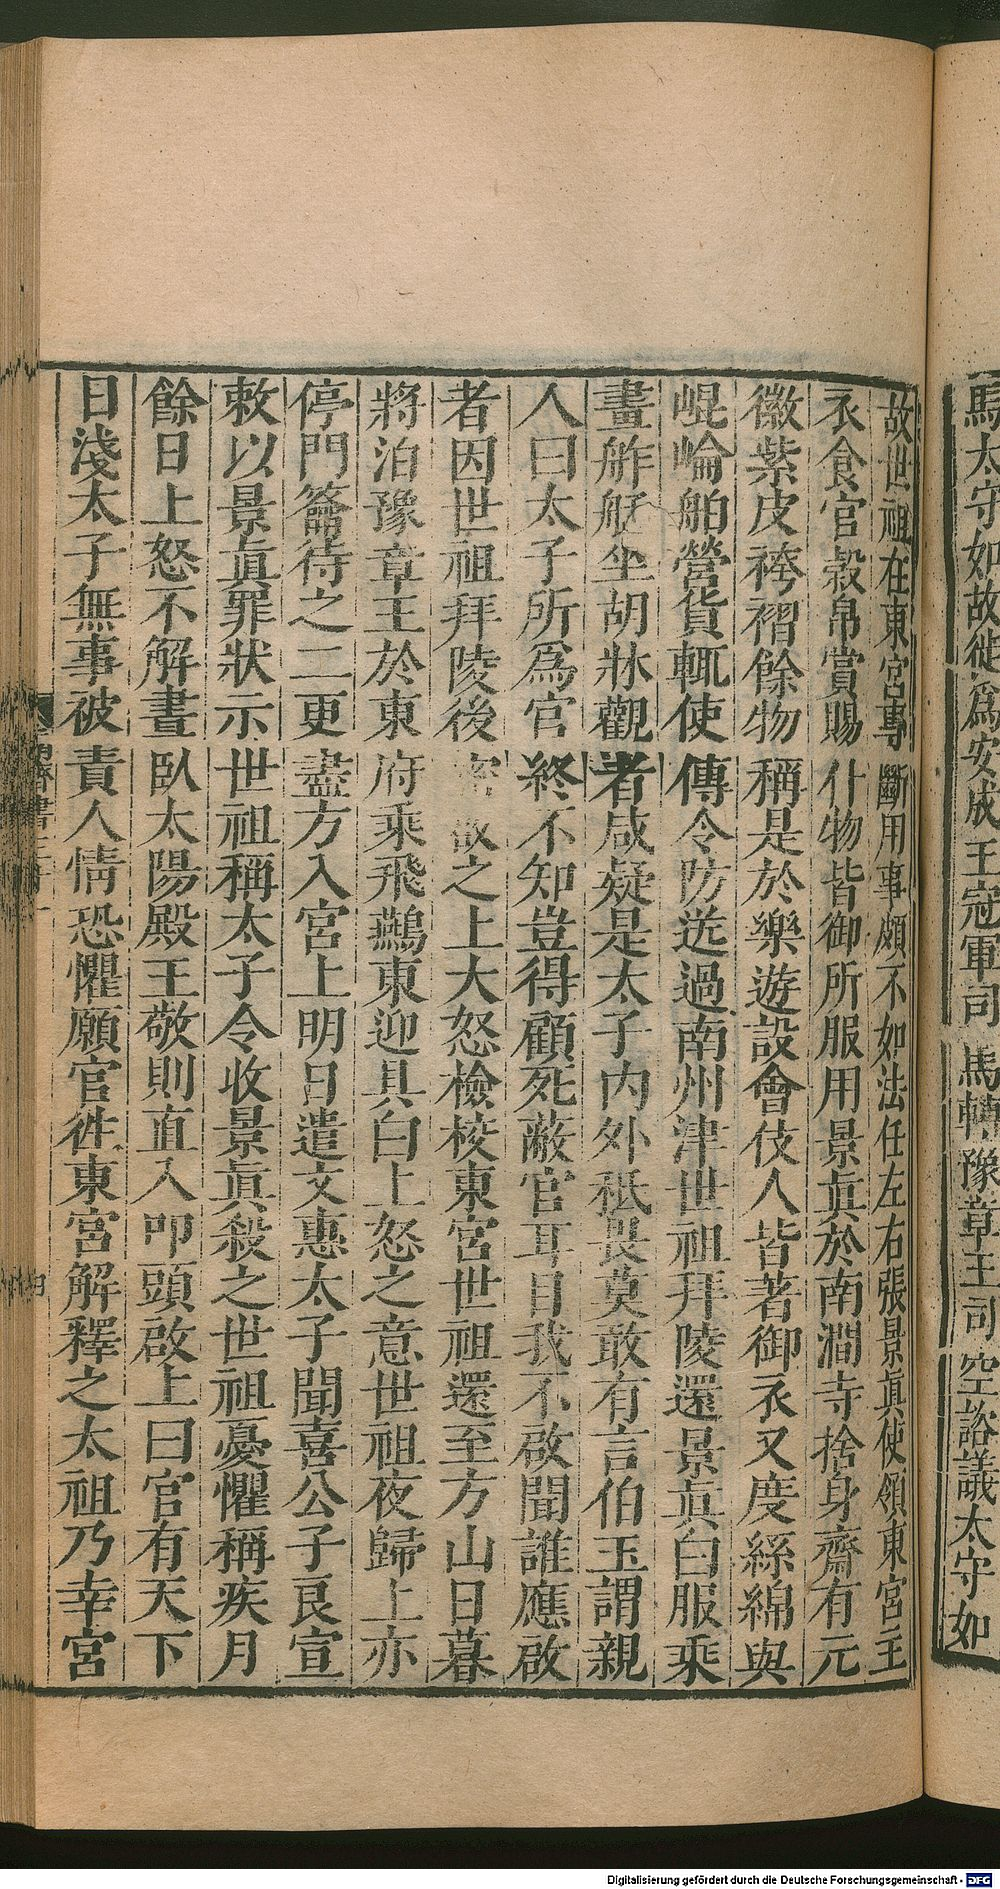 馬太守如故徙爲安成王冠軍司馬轉豫章王司空諮議太守如
故世祖在東宮專斷用事頗不如法任左右張景眞使領東宮主
衣食官穀帛賞賜什物皆御所服用景眞於南澗寺捨身齋有元
徽紫皮袴褶餘物稱是於樂遊設會伎人皆著御衣又度絲綿與
崐崘舶營貨輒使傳令防送過南州津世祖拜陵還景眞白服乘
畫舴艋坐胡牀觀者咸疑是太子内外祇畏莫敢有言伯玉謂親
人曰太子所爲官終不知豈得顧死蔽官耳目我不啟聞誰應啟
者因世祖拜陵後密啟之上大怒檢校東宮世祖還至方山日暮
將泊豫章王於東府乘飛鷰東迎具白上怒之意世祖夜歸上亦
停門籥待之二更盡方入宮上明日遣文惠太子聞喜公子良宣
敕以景眞罪狀示世祖稱太子令收景眞殺之世祖憂懼稱疾月
餘日上怒不解晝臥太陽殿王敬則直入叩頭啟上曰官有天下
日淺太子無事被責人情恐懼願官往東宮解釋之太祖乃幸宮
Digitalisierung gefördert durch die Deutsche Forschungsgemeinschaft - DFG